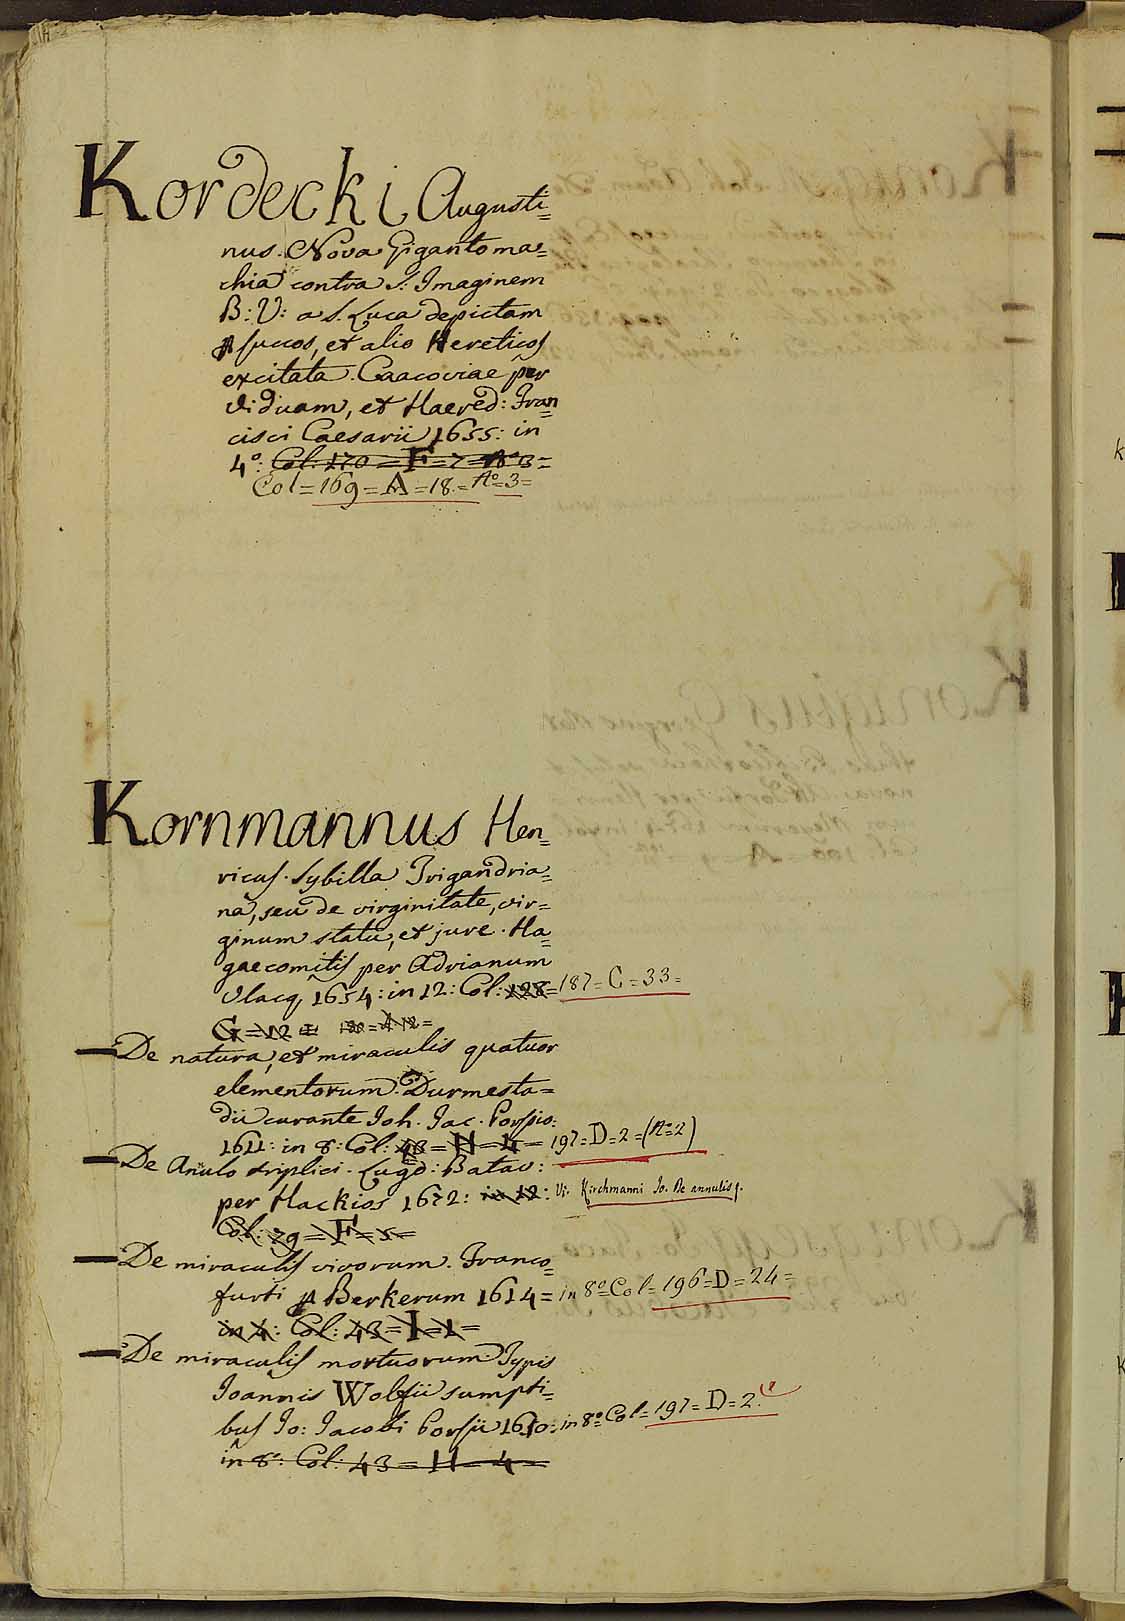 Kordecki Augusti=
nus. Nova Gigantoma=
chia contra S: Imaginem
B: V: a S. Luca depictam
p succos, et alio Hereticos
excitata. Caacoviae per
viduam, et Haered: Fran=
cisci Caesarii 1655: in
4º: Col: 170 = F = 7 = Nº 3 =
Col = 169 = A = 18 = Nº = 3 =
Kornmannus Hen=
ricus. Sybilla Trigandria=
na, seu de virginitate, vir=
ginum statu, et jure. Ha=
gaecomitis per Adrianum
Vlacq, 1654: in 12: Col: 128 = 187 = C = 33 =
G = 12 = 120 = A 12 =
De natura, et miraculis quatuor
elementorum. Durmesta=
dii curante Joh. Jac. Porsio.
1611: in 8: Col: 43 = H = 4 = 197 = D = 2 = (Nº 2)
De Anulo triplici. Lugd: Batav:
per Hackios 1672: in 12: Vi. Kirchmanni Jo. De annulis.
Col: 79 = F = 5 =
De miraculis vivorum. Franco=
furti p Berkerum 1614 = in 8º Col = 196 = D = 24 =
in 4: Col: 43 = I = 1 =
De miraculis mortuorum. Typis
Joannis Wolfii sumpti=
bus Jo: Jacobi Porsii 1610: in 8º Col = 197 = D = 2.
in 8º: Col: 43 = H = 4 =